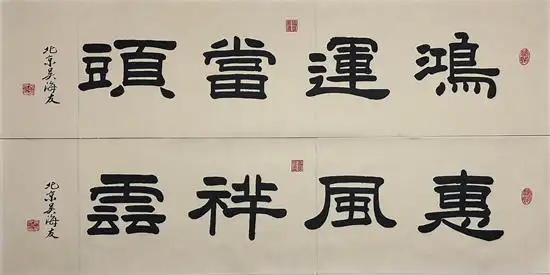 鴻運當頭
北京吳海友
惠風祥雲
北京吳海友